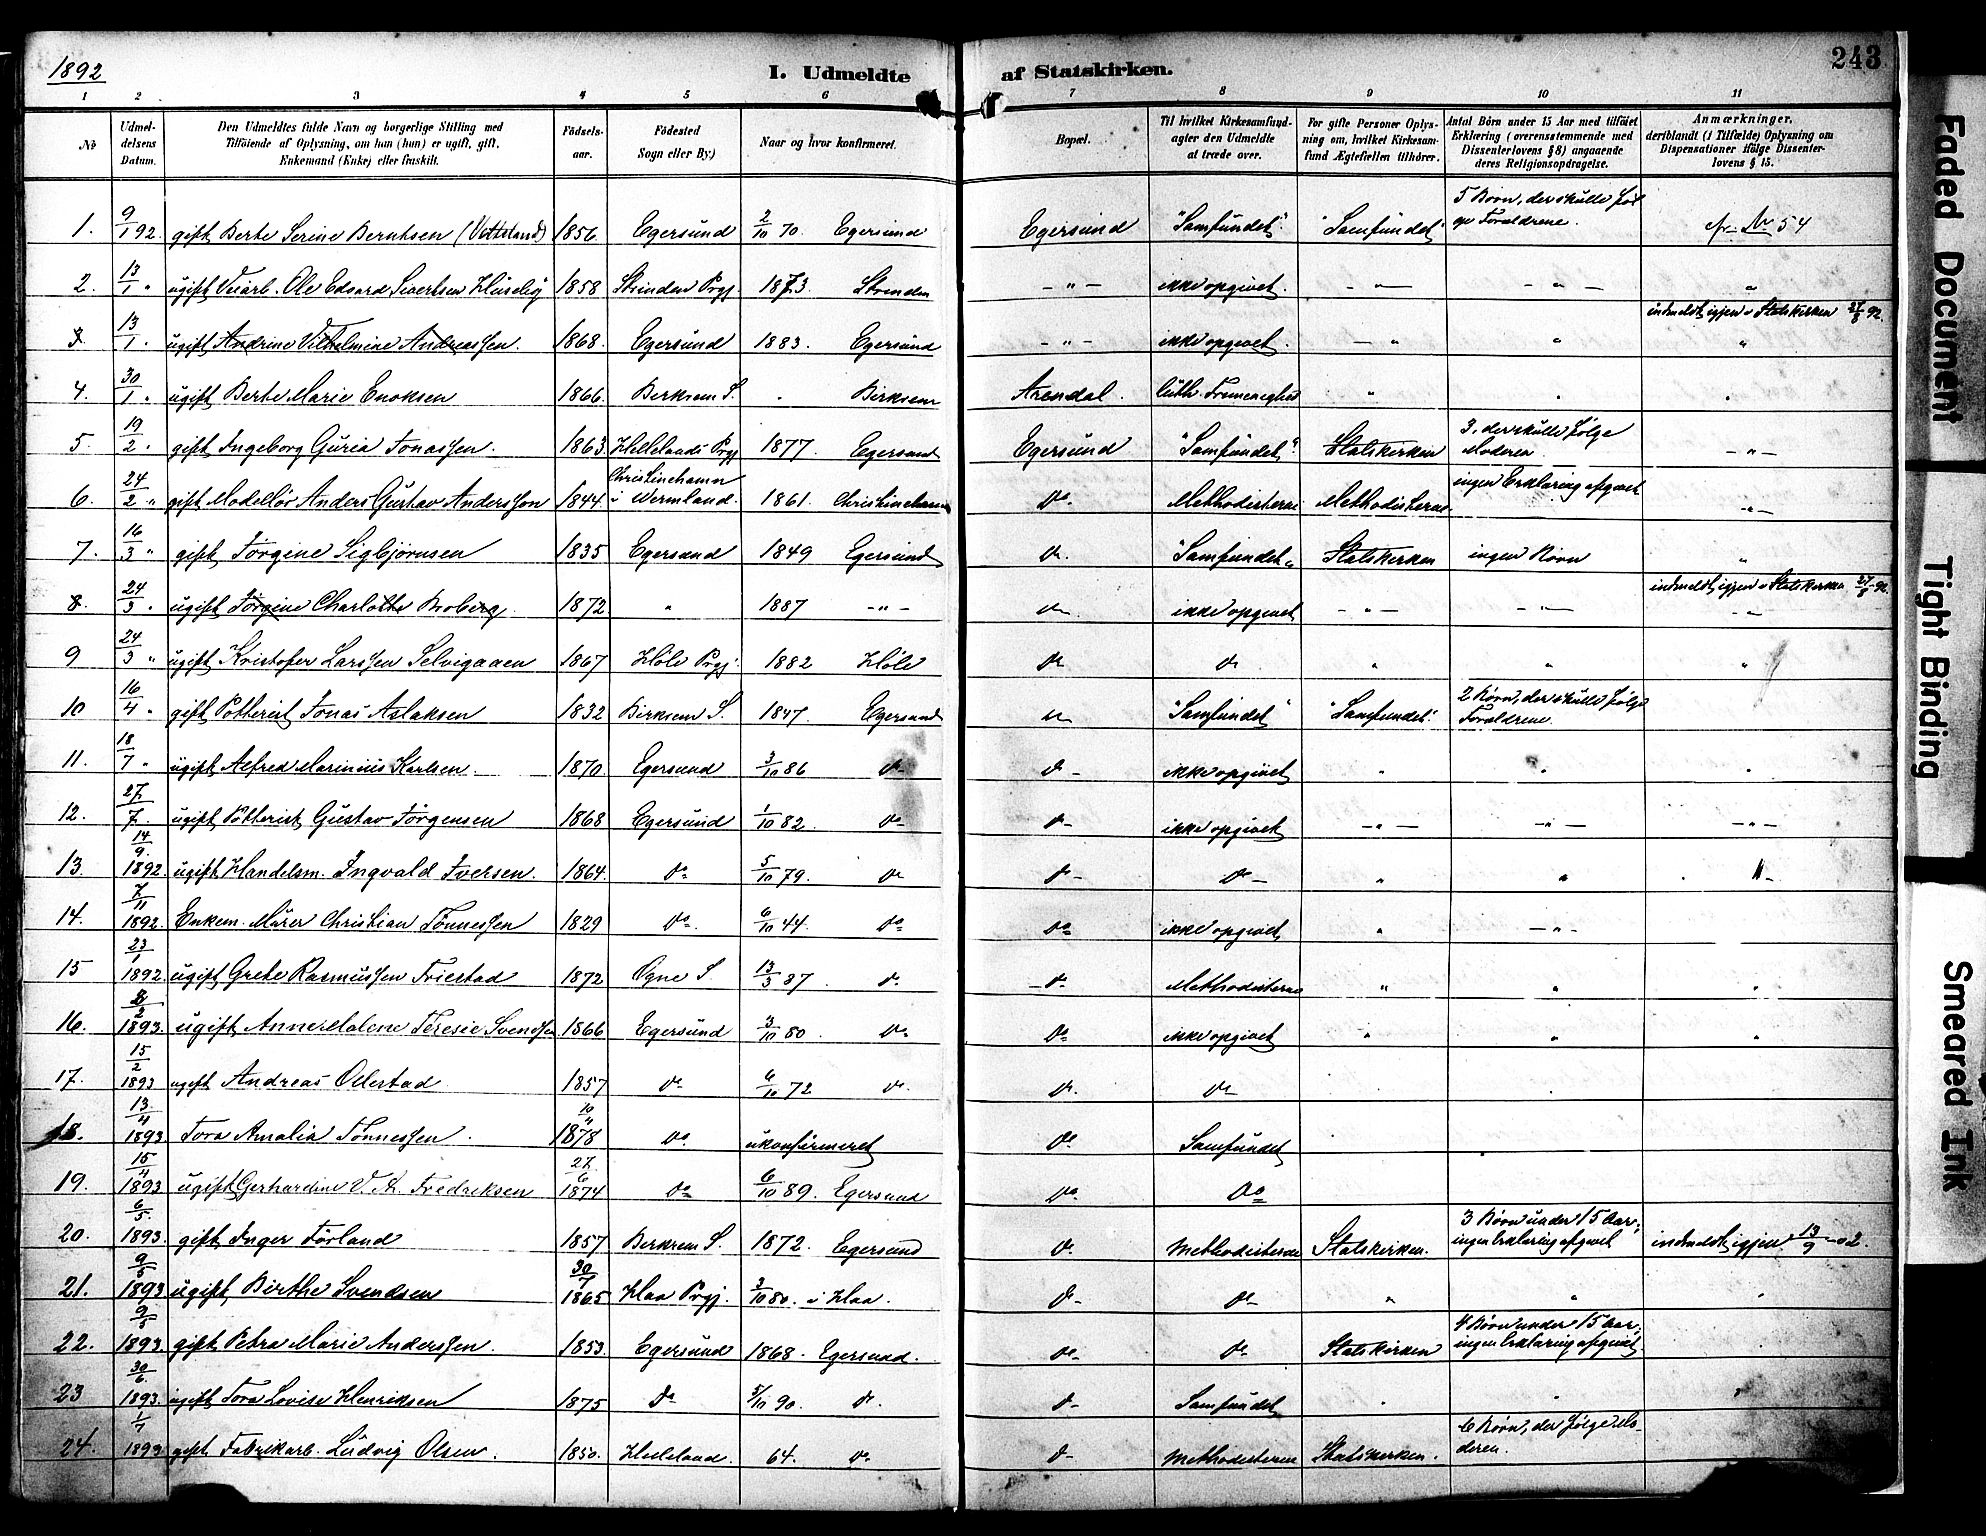 1892
I. Udmeldte af Statskirken.
243
1 2 3 4 5 6 7 8 9 10 11
No | Udmeldelsens Datum. | Den Udmeldtes fulde Navn og borgerlige Stilling med Tilföiende af Oplysning, om han (hun) er ugift, gift, Enkemand (Enke) eller fraskilt. | Födselsaar. | Födested Sogn eller By.) | Naar og hvor konfirmeret. | Bopæl. | Til hvilket Kirkesamfund agter den Udmeldte at træde over. | For gifte Personer Oplysning om, hvilket Kirkesamfund Ægtefællen tilhörer. | Antal Börn under 15 Aar med tilföiet Erklæring (overensstemmende med Dissenterlovens §8) angaaende deres Religionsopdragelse. | Anmærkninger, deriblandt (i Tilfælde) Oplysning om Dispensationer ifölge Dissenterlovens § 15.
1. 9/1 92. gift Berte Serine Berntsen (Vettland) 1856 Egersund 2/10 70 Egersund Egersund "Samfundet". "Samfundet" 5 Børn, der skulle følge Forældrene. cfr. Nr 54
2. 13/1 " ugift Ole Edvard Sivertsen Huseby 1858 Strinden Prgj. 1873 Strinden - " - ikke opgivet. - " - - " - "
3. 13/1 " ugift Andrine Vilhelmine Andreassen. 1868. Egersund 1883. Egersund - " - ikke opgivet. - " " indmeldt igjen i Statskirken 27/8 92. "
4. 30/1 " ugift Berte Marie Enoksen 1866. Berkrem S. " Birkrem Arendal. luth. Frimenighed " " "
5. 19/2 " gift Ingeborg Guria Jonassen. 1863. Hellelands Prgj 1877. Egersund Egersund "Samfundet" Statskirken 3, der skulle følge Moderen. - " -
6. 24/2 " gift Modellør Anders Gustav Andersson 1844 Christinehamn i Wermland. 1861. Christinehamn Do Methodisterne Methodisterne ingen Erklæring afgivet - " -
7. 16/3 " gift Jørgine Sigbjørnsen 1835 Egersund 1849 Egersund do. "Samfundet" Statskirken ingen Børn "
8. 24/3 " ugift Jørgine Charlotte Broberg. 1872 " 1887 - " - do ikke opgivet - " - - " - indmeldt igjen i Statskirken - " -
9 24/3 " ugift Kristofer Larssen Selvigaaen 1867 Høle Prgj. 1882 Høle do do " " "
10 16/4 " gift Potterist Jonas Aslaksen 1832 Birkrem S. 1847 Egersund do "Samfundet" "Samfundet". 2 Børn, der skulle følge Forældrene.
11. 18/7 " ugift Alfred Marinius Karlsen. 1870. Egersund 3/10 86 do do ikke opgivet " " "
12. 27/7. ugift Potterist Gustav Jørgensen 1868 Egersund 1/10 82. do do ikke opgivet - " - - " - - " -
13. 14/9. 1892. ugift Handelsm. Ingvald Iversen. 1864. do 5/10 79. do do do " " "
14. 7/11 1892. Enkem. Murer Christian Tønnessen 1829 do. 6/10 44. do do ikke opgivet " - " -
15 23/1 1892 ugift Grete Rasmussen Friestad 1872 Ogne S. 13/3 87 do. do Methodisterne " " "
16. 8/2 1893. ugift Anne Malene Teresie Svendsen 1866 Egersund 3/10 80 do do ikke opgivet " " "
17. 15/2 1893 ugift Andreas Ollestad 1857 do 6/10 72 do. do. do
18. 13/4 1893 Tora Amalia Tønnessen. 10/11 1878 do. ukonfirmeret do. Samfundet
19. 15/4 1893 ugift Gerhardine V. A. Fredriksen 27/6 1874 do 6/10 89. Egersund do. Do
20. 6/5. 1893. gift Inger Førland 1857 Berkrem S. 1872. Egersund do. Methodisterne Statskirken. 3 Børn under 15 Aar; ingen Erklæring afgivet indmeldt igjen 13/9 02.
21. 9/5 1893 ugift Birthe Svendsen 30/7 1865 Haa Prgj. 3/10 80. i Haa. do do " "
22. 9/5 1893. gift Petra Marie Anderssen. 1853. Egersund 1868. Egersund. do do Statskirken 4 Børn under 15 Aar; ingen Erklæring afgivet.
23 30/6. 1893. ugift Tora Lovise Henriksen 1875 Do 5/10 90. do. do Samfundet " " "
24. 1/7 1893 gift Fabrikarb. Ludvig Olsen. 1850. Helleland. 64. do do Methodisterne Statskirken. 6 Børn, der følge Moderen.
Faded Document
Tight Binding
Smeared Ink